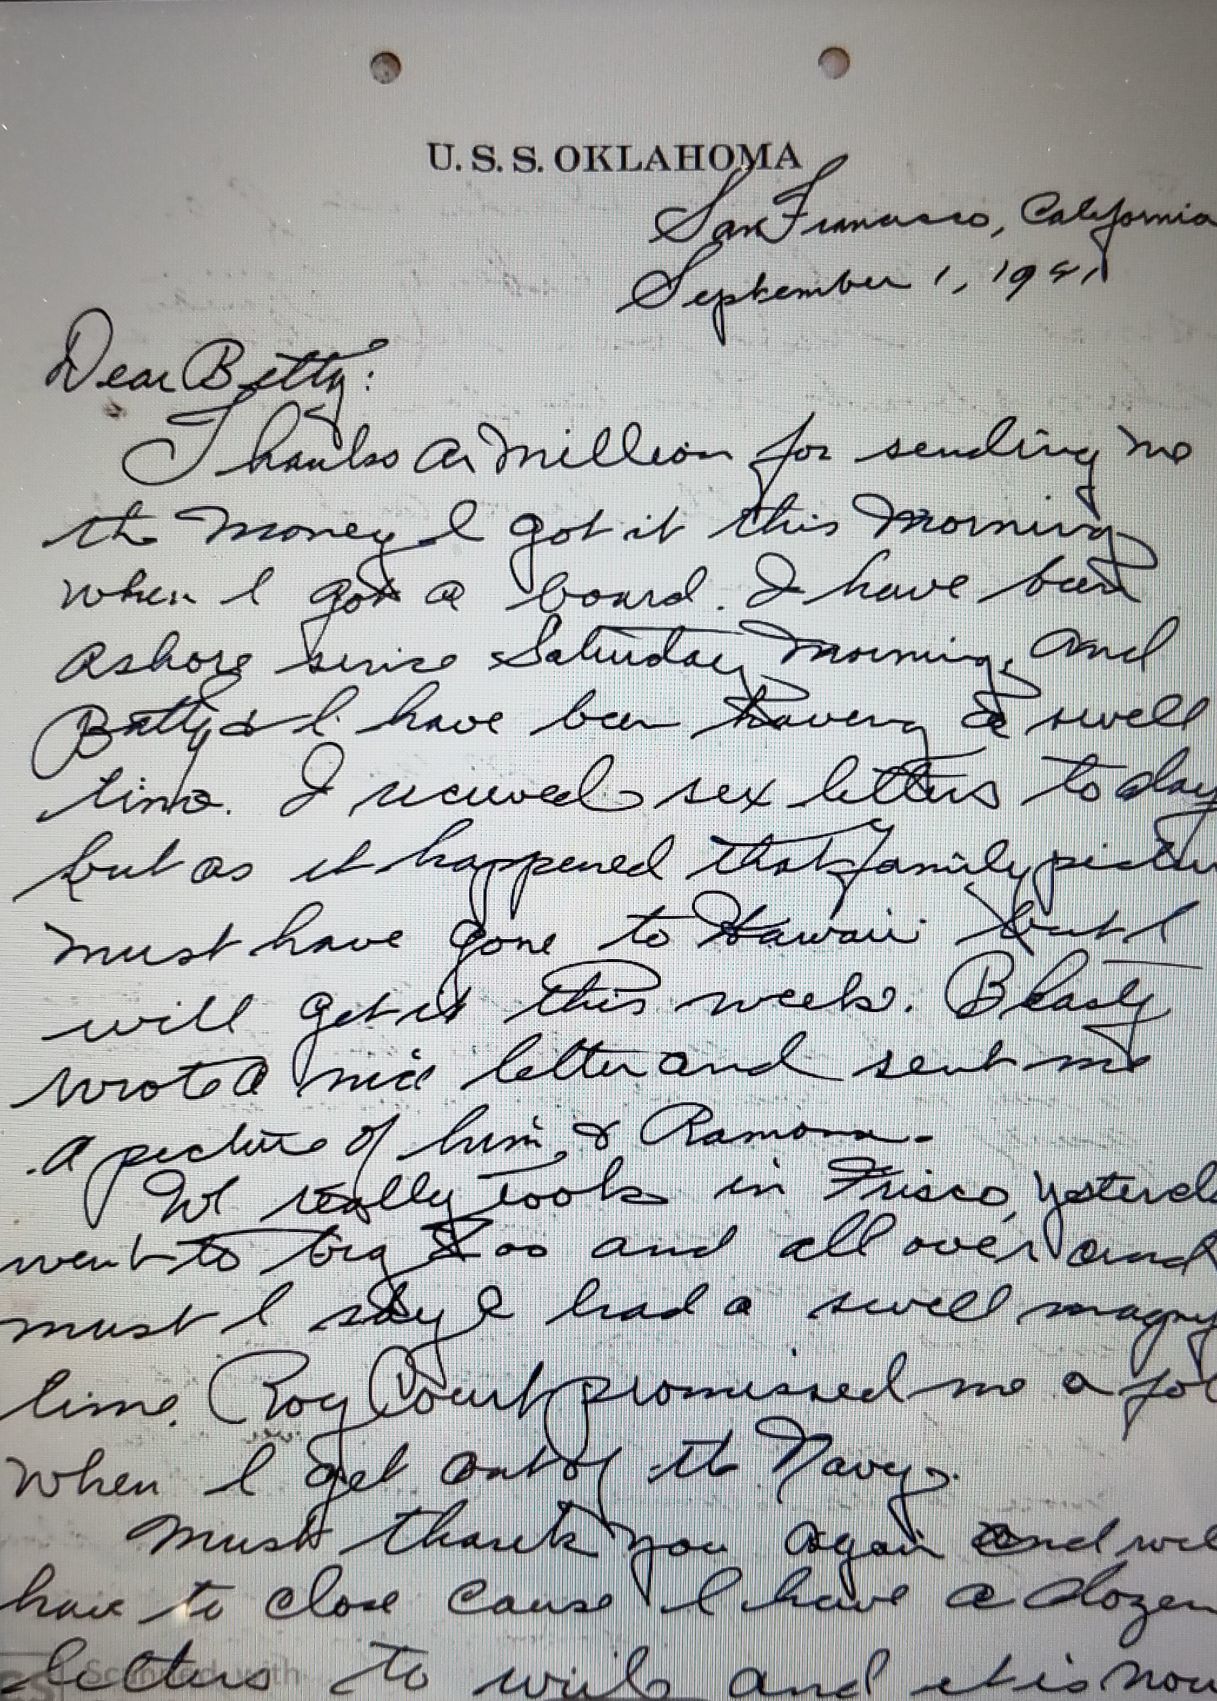 U. S. S. OKLAHOMA
San Francisco, California
September 1, 1941
Dear Betty:
Thanks a million for sending me
the money I got it this morning
when I got a board. I have been
ashore since Saturday morning, and
Betty & I have been having a swell
time. I recieved six letters today
but as it happened that family pictu
must have gone to Hawaii but I
will get it this week. Blasty
wrote a nice letter and sent me
a picture of him & Ramona.
We really took in Frisco, yesterd
went to big Zoo and all over and
must I say I had a swell
time. Roy Court promissed me a job
when I get out of the Navy.
Must thank you again and wil
have to close cause I have a dozen
letters to write and it is now
Scanned with